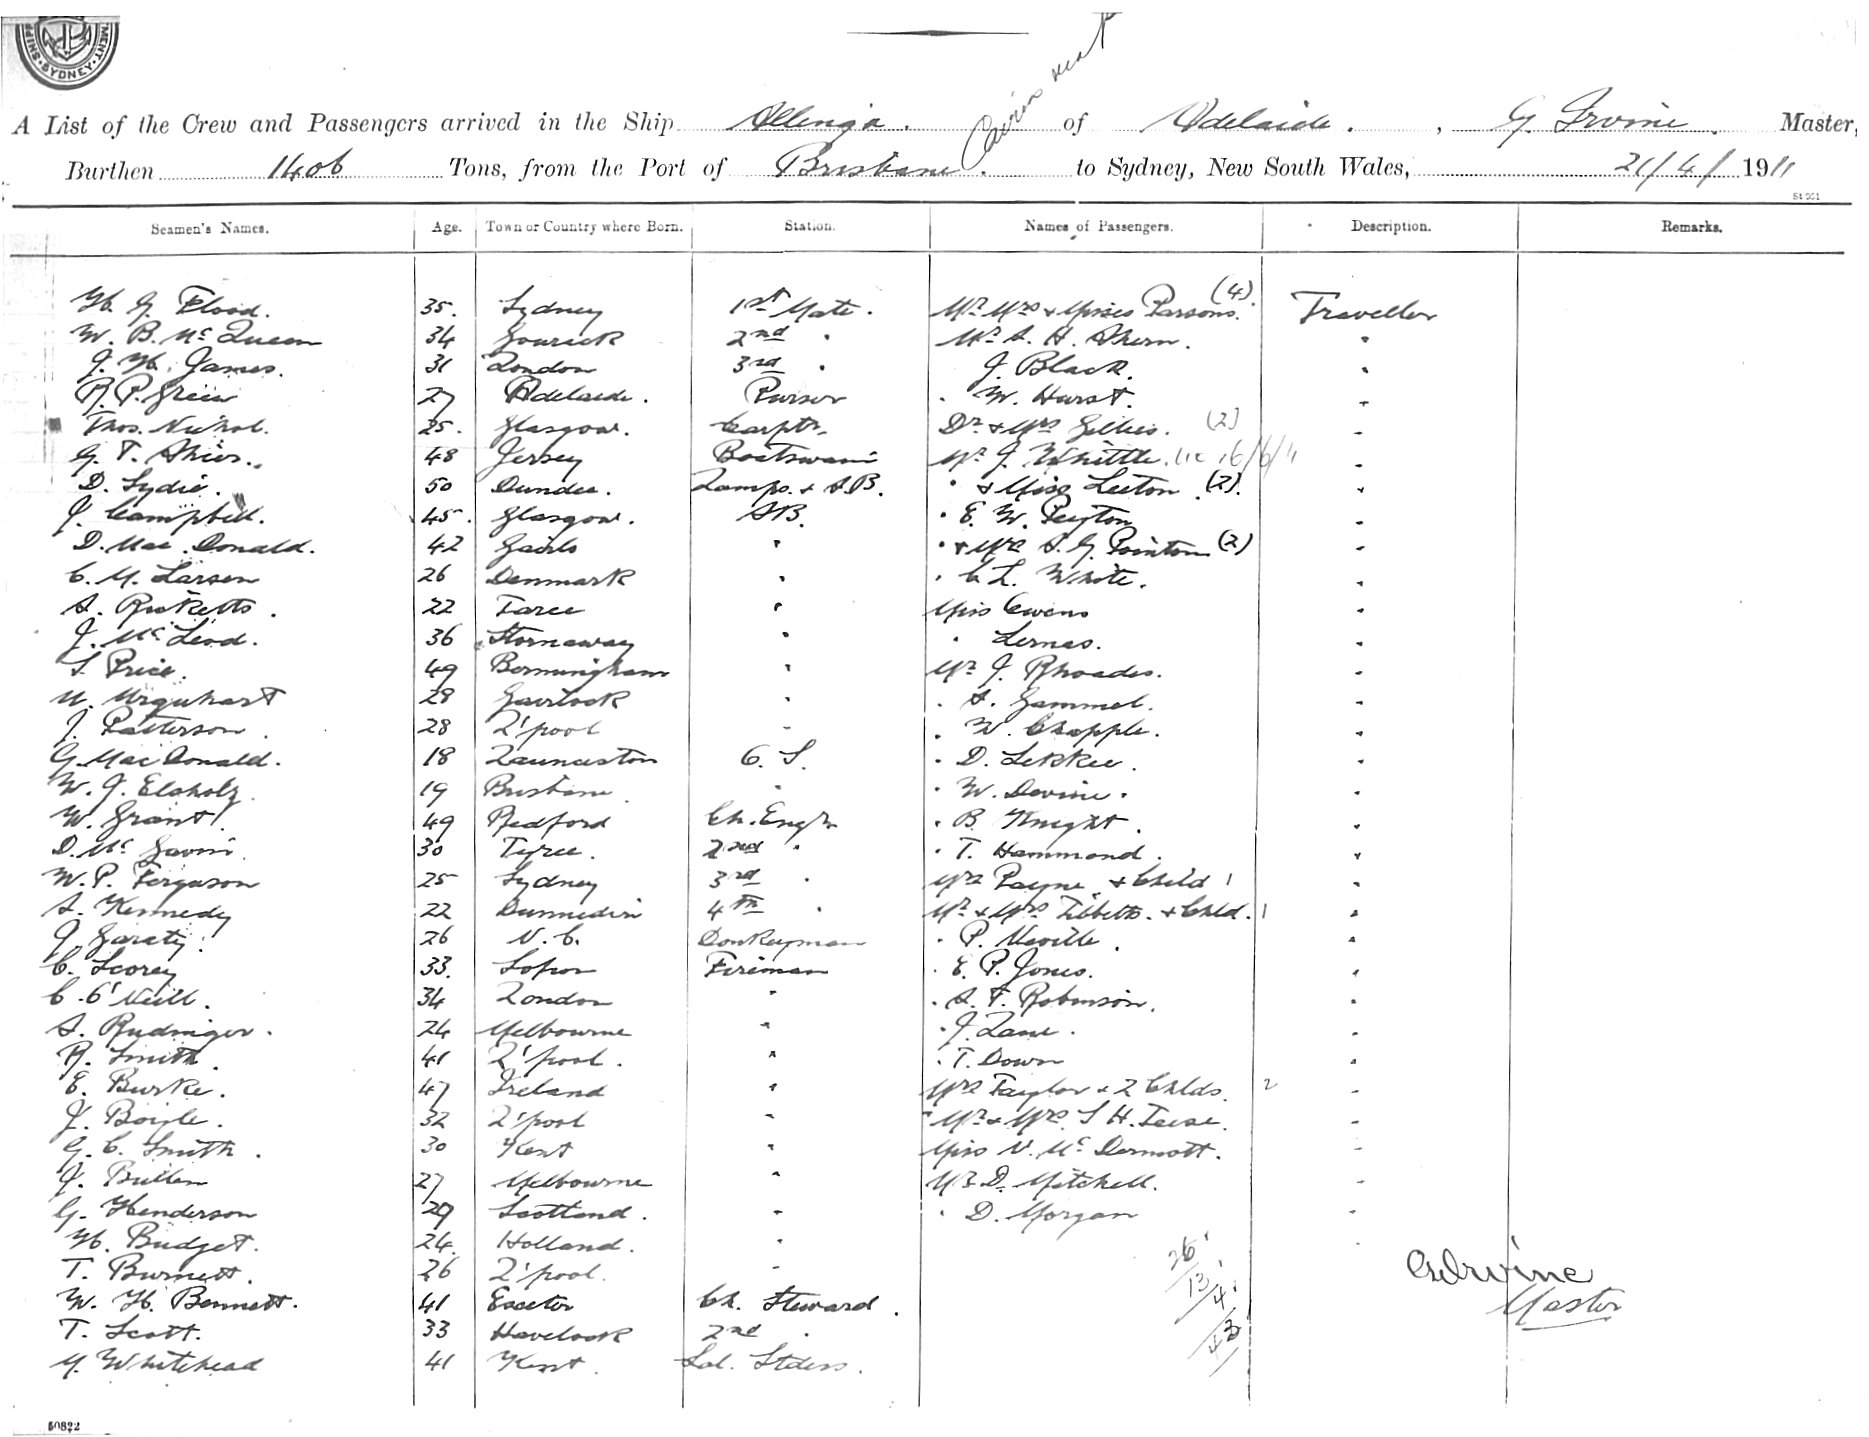 SHIPP MENT. SYDNEY.
Cairns
A List of the Crew and Passengers arrived in the Ship Allinga. of Adelaide. , G. Irvine. Master,
Burthen 1406 Tons, from the Port of Brisbane. to Sydney, New South Wales, 21/4/1911
St 951
Seamen's Names. Age. Town or Country where Born. Station. Names of Passengers. Description. Remarks.
H. G. Flood. 35. Sydney 1st Mate. Mr Mrs & Misses Parsons. (4) Traveller
W. B. McQueen 34 Gourick 2nd " Mr A. H. Ahern. "
J. H. James. 31 London 3rd " J. Black. "
R. P. Greer 27 Adelaide. Purser " W. Hurst. "
Thos. Nichol. 25. Glasgow. Carptr. Dr & Mrs Gillies. (2) "
G. T. 48 Jersey Boatswain Mr J. Whittle. 16/6/11 "
D. Lydie. 50 Dundee. Lamps. & AB. " & Miss Leeton (2). "
J. Campbell. 45. Glasgow. AB. " E. W. Peyton "
D. Mac Donald. 42 " " & Mrs A. G. Pointon (2) "
C. M. Larsen 26 Denmark " " C. L. White. "
A. Ricketts. 22 Taree " Miss Owens "
J. McLeod. 36 Stornaway " " Lernes. "
S. Price. 49 Bermingham " Mr J. Rhoades. "
M. Urquhart 28 Gairlock " " A. Gammel. "
J. Patterson. 28 L'pool " " W. Chapple. "
G. Mac Donald. 18 Launceston O. S. " D. Lekkee. "
W. J. Elsholz. 19 Brisbane " " W. Devine. "
W. Grant. 49 Redford Ch. Engr " B. Knight. "
D. McGavin. 30 Tyree. 2nd " " T. Hammond. "
W. P. Ferguson 25 Sydney 3rd " Mrs Payne & Child 1 "
A. Kennedy 22 Dunnedin 4th " Mr & Mrs Tibbetts & Child. 1 "
J. Garaty. 26 N. C. Donkeyman " P. Neville. "
C. Scorey 33. Fireman " E. P. Jones. "
C. O'Neill. 34 London " " A. F. Robinson. "
A. Rudniger. 24 Melbourne " " J. Lane. "
R. Smith. 41 L'pool. " " T. Down "
E. Burke. 47 Ireland " Mrs Taylor & 2 Childs. 2 "
J. Boyle. 32 L'pool " Mr & Mrs S. H. Teese. "
G. C. Smith. 30 Kent " Miss N. McDermott. "
J. Bullen 27 Melbourne " Mr D. Mitchell. "
G. Henderson 29 Scotland. " " D. Morgan "
H. Budget. 24. Holland. " "
T. Burnett. 26 L'pool. "
26
13
4
43
G Irvine
Master
W. H. Bennett. 41 Exeter Ch. Steward.
T. Scott. 33 Havelock 2nd "
M. Whitehead 41 Kent. Sal. Stdess.
50822